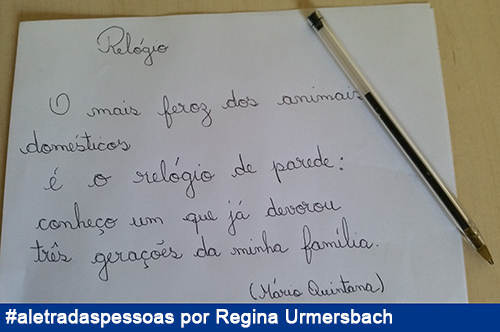 Relógio
O mais feroz dos animais
domésticos
é o relógio de parede:
conheço um que já devorou
três gerações da minha família.
(Mário Quintana)
#aletradaspessoas por Regina Urmersbach